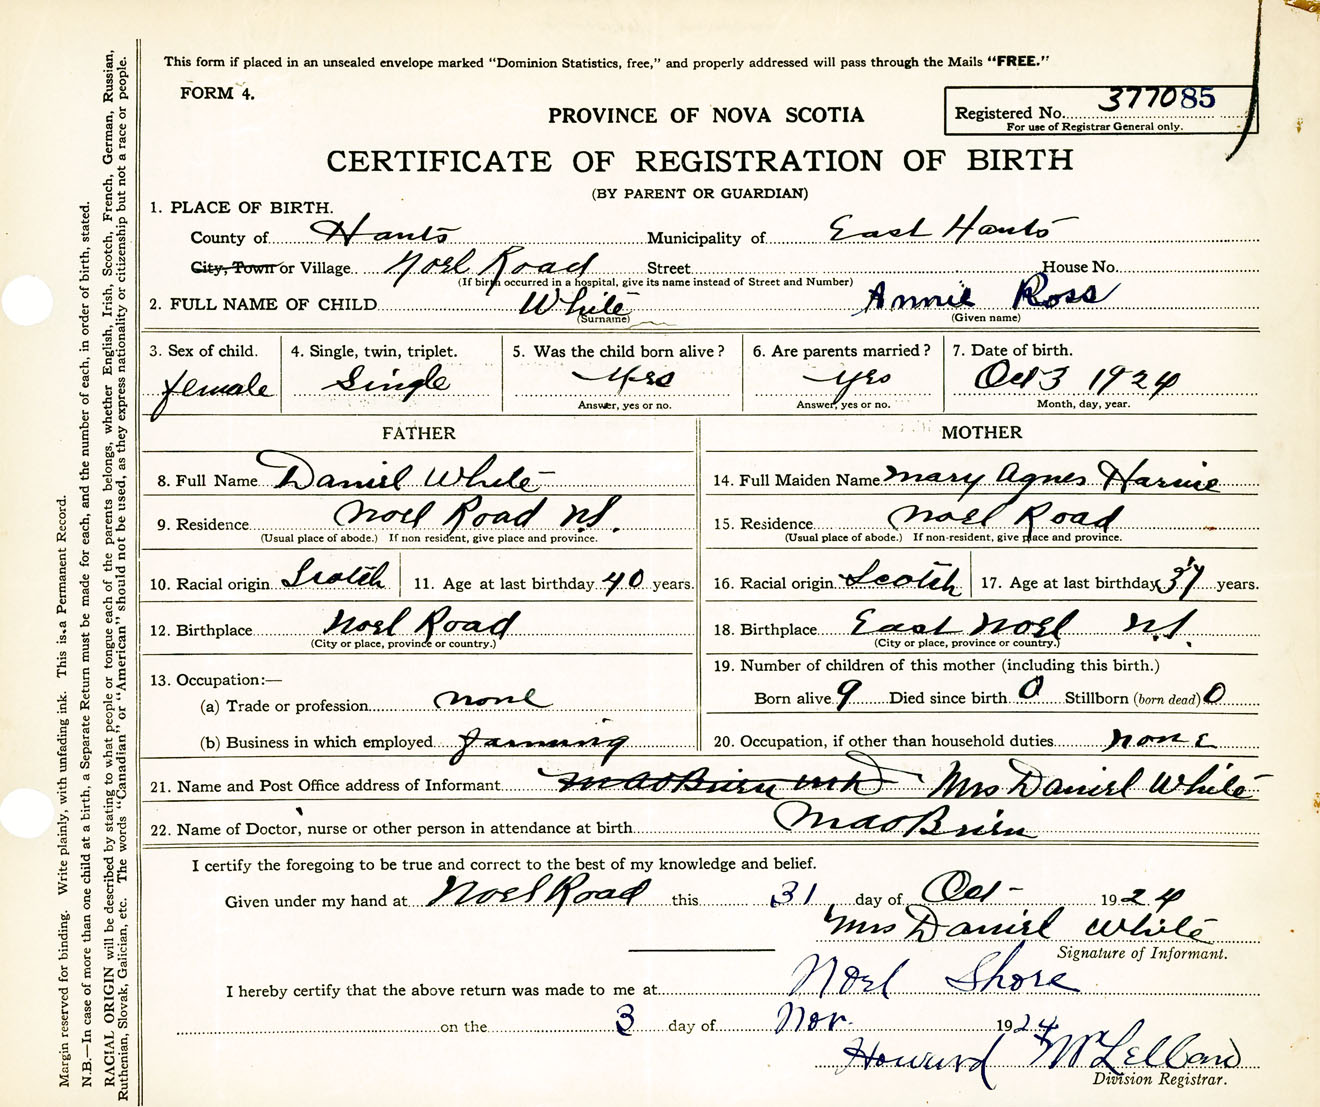 This form if placed in an unsealed envelope marked “Dominion Statistics, free,” and properly addressed will pass through the Mails “FREE.”
FORM 4.
Registered No. 377085
For use of Registrar General only.
PROVINCE OF NOVA SCOTIA
CERTIFICATE OF REGISTRATION OF BIRTH
(BY PARENT OR GUARDIAN)
1. PLACE OF BIRTH.
County of Hants Municipality of East Hants
City, Town or Village Noel Road Street House No.
(If birth occurred in a hospital, give its name instead of Street and Number)
2. FULL NAME OF CHILD White Annie Ross
(Surname) (Given name)
3. Sex of child. 4. Single, twin, triplet. 5. Was the child born alive? 6. Are parents married? 7. Date of birth.
female Single Yes yes Oct 3 1924
Answer, yes or no. Answer, yes or no. Month, day, year.
FATHER MOTHER
8. Full Name Daniel White 14. Full Maiden Name Mary Agnes Harvie
9. Residence Noel Road N.S. 15. Residence Noel Road
(Usual place of abode.) If non resident, give place and province. (Usual place of abode.) If non-resident, give place and province.
10. Racial origin Scotch 11. Age at last birthday 40 years. 16. Racial origin Scotch 17. Age at last birthday 37 years.
12. Birthplace Noel Road 18. Birthplace East Noel N.S.
(City or place, province or country.) (City or place, province or country.)
13. Occupation:— 19. Number of children of this mother (including this birth.)
(a) Trade or profession none Born alive 9 Died since birth 0 Stillborn (born dead) 0
(b) Business in which employed farming 20. Occupation, if other than household duties none
21. Name and Post Office address of Informant Mrs Daniel White
22. Name of Doctor, nurse or other person in attendance at birth
I certify the foregoing to be true and correct to the best of my knowledge and belief.
Given under my hand at Noel Road this 31 day of Oct 1924
Mrs Daniel White
Signature of Informant.
I hereby certify that the above return was made to me at Noel Shore
on the 3 day of Nov. 1924
Howard McLellan
Division Registrar.
Margin reserved for binding. Write plainly, with unfading ink. This is a Permanent Record.
N.B.—In case of more than one child at a birth, a Separate Return must be made for each, and the number of each, in order of birth, stated.
RACIAL ORIGIN will be described by stating to what people or tongue each of the parents belongs, whether English, Irish, Scotch, French, German, Russian,
Ruthenian, Slovak, Galician, etc. The words “Canadian” or “American” should not be used, as they express nationality or citizenship but not a race or people.